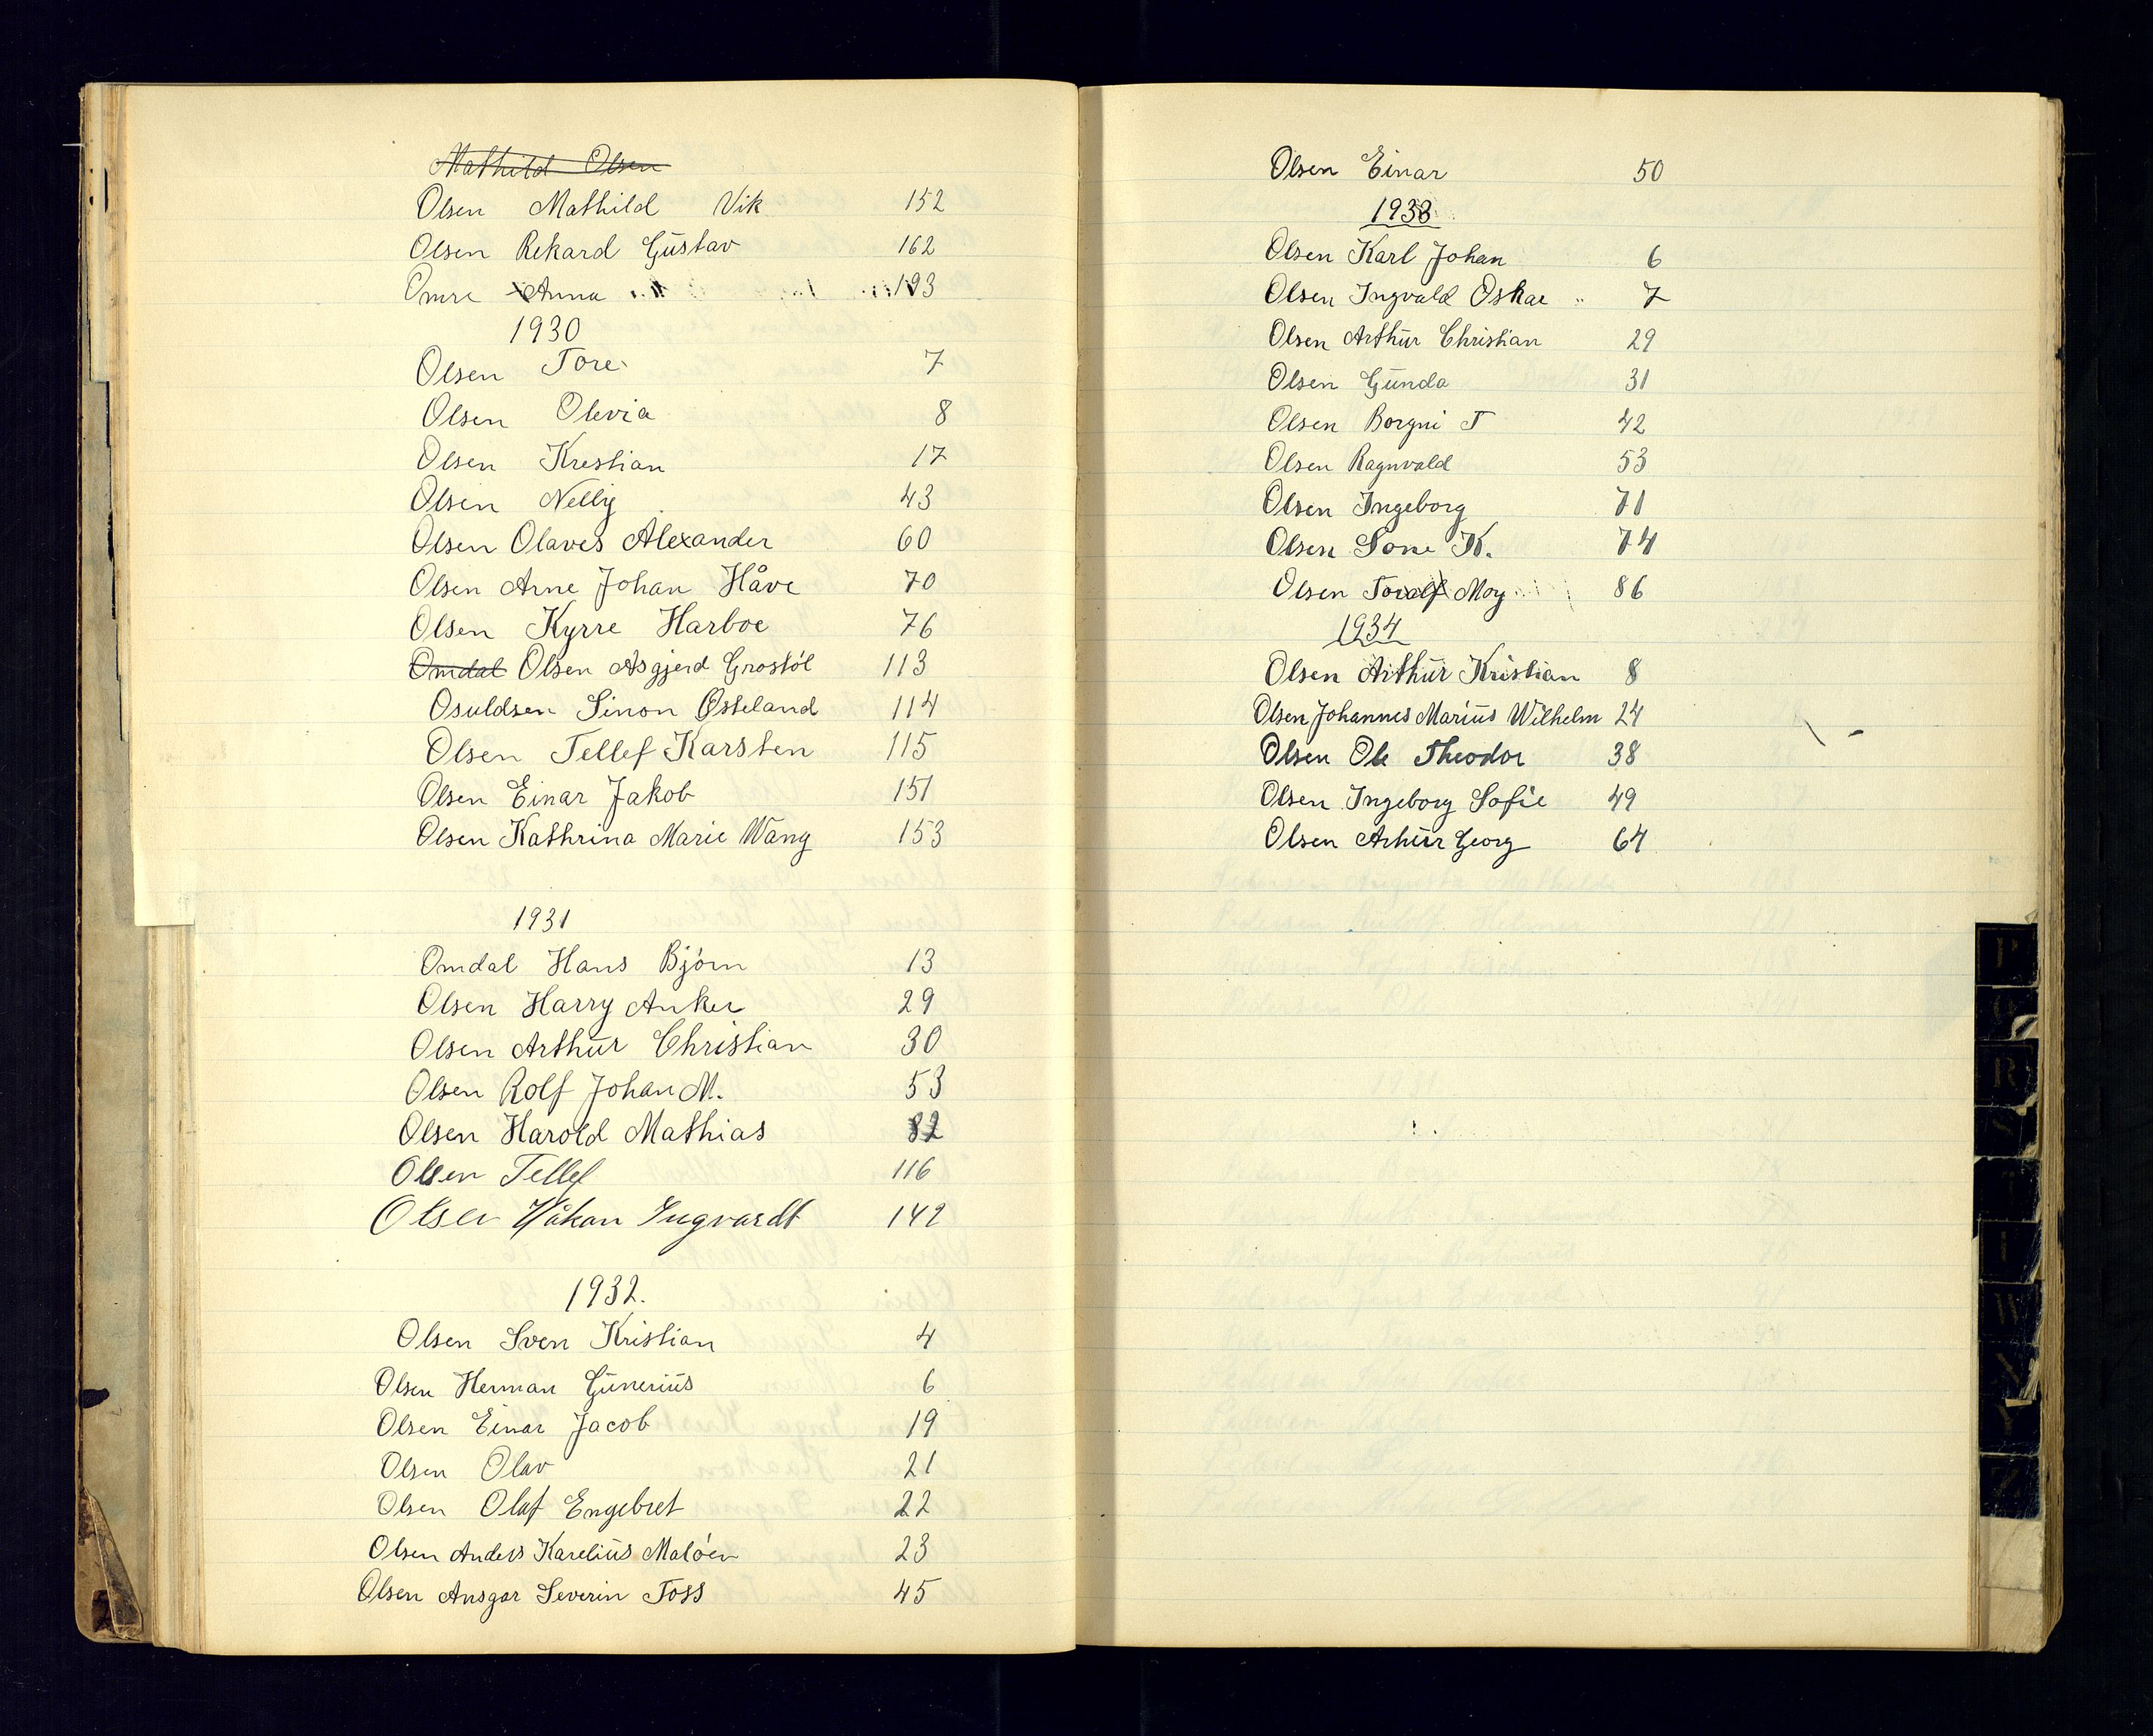 Mathild Olsen
Olsen Mathild Vik 152
Olsen Rikard Gustav 162
Omre Anna 193
1930
Olsen Tore 7
Olsen Olevia 8
Olsen Krestian 17
Olsen Nelly 43
Olsen Olaves Alexander 60
Olsen Arne Johan Håve 70
Olsen Kyrre Harboe 76
Omdal Olsen Asgjerd Grostøl 113
Osuldsen Simon Østeland 114
Olsen Tellef Karsten 115
Olsen Einar Jakob 151
Olsen Kathrina Marie Wang 153
1931
Omdal Hans Bjørn 13
Olsen Harry Anker 29
Olsen Arthur Christian 30
Olsen Rolf Johan M. 53
Olsen Harold Mathias 82
Olsen Tellef 116
Olsen Håkan Ingvardt 142
1932.
Olsen Sven Kristian 4
Olsen Herman Gunerius 6
Olsen Einar Jacob 19
Olsen Olav 21
Olsen Olaf Engebret 22
Olsen Anders Karelius Maløen 23
Olsen Ansgar Severin Foss 45
Olsen Einar 50
1933
Olsen Karl Johan 6
Olsen Ingvald Oskar 7
Olsen Arthur Christian 29
Olsen Gunda 31
Olsen Borgni T 42
Olsen Ragnvald 53
Olsen Ingeborg 71
Olsen Sone K. 74
Olsen Toralf Moy 86
1934
Olsen Arthur Kristian 8
Olsen Johannes Marius Wilhelm 24
Olsen Ole Theodor 38
Olsen Ingeborg Sofie 49
Olsen Arhur Georg 64
R
T
W